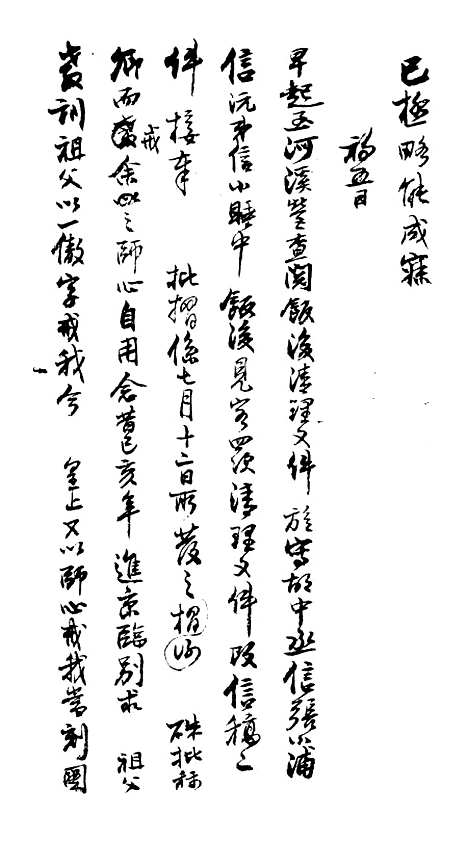 已极略能成寐
初五日
早起至河溪营查阅饭後清理文件旋寄胡中丞信張小浦
信沅弟信小睡中飯後見客四次清理文件改信稿二
件 接奉 批摺係七月十二日所發之摺 硃批称
卿而戒余以之師心自用念昔己亥年進京臨别求 祖父
教訓祖父以一傲字戒我今 皇上又以師心戒我當刻圖